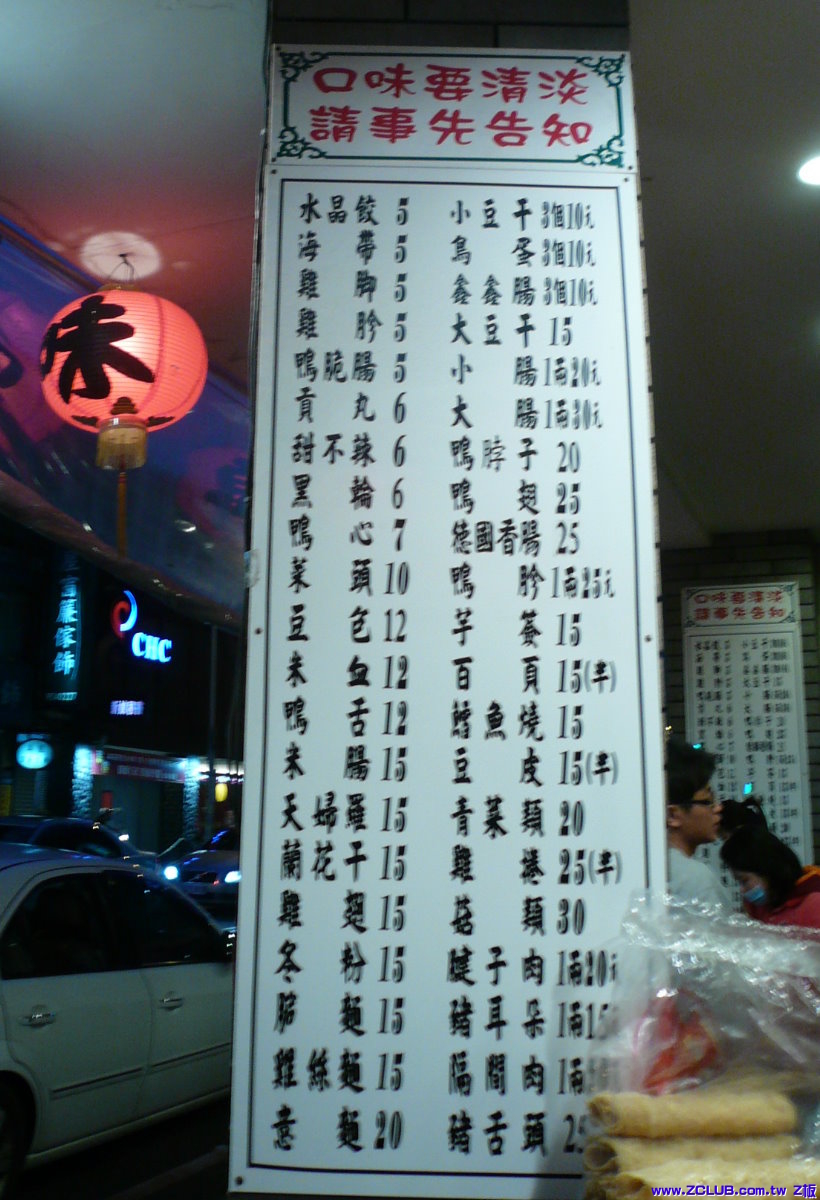 口味要清淡
請事先告知
水晶餃 5
海帶 5
雞脚 5
雞肫 5
鴨脆腸 5
貢丸 6
甜不辣 6
黑輪 6
鴨心 7
菜頭 10
豆包 12
米血 12
鴨舌 12
米腸 15
天婦羅 15
蘭花干 15
雞翅 15
冬粉 15
脆麵 15
雞絲麵 15
意麵 20
小豆干 3個10元
鳥蛋 3個10元
鑫鑫腸 3個10元
大豆干 15
小腸 1兩20元
大腸 1兩30元
鴨脖子 20
鴨翅 25
德國香腸 25
鴨肫 1兩25元
芋簽 15
百頁 15(半)
鱈魚燒 15
豆皮 15(半)
青菜類 20
雞捲 25(半)
菇類 30
腱子肉 1兩20元
豬耳朵 1兩15
隔間肉 1兩
豬舌頭 25
味
CHC
傢飾
口味要清淡
請事先告知
www.ZCLUB.com.tw Z板